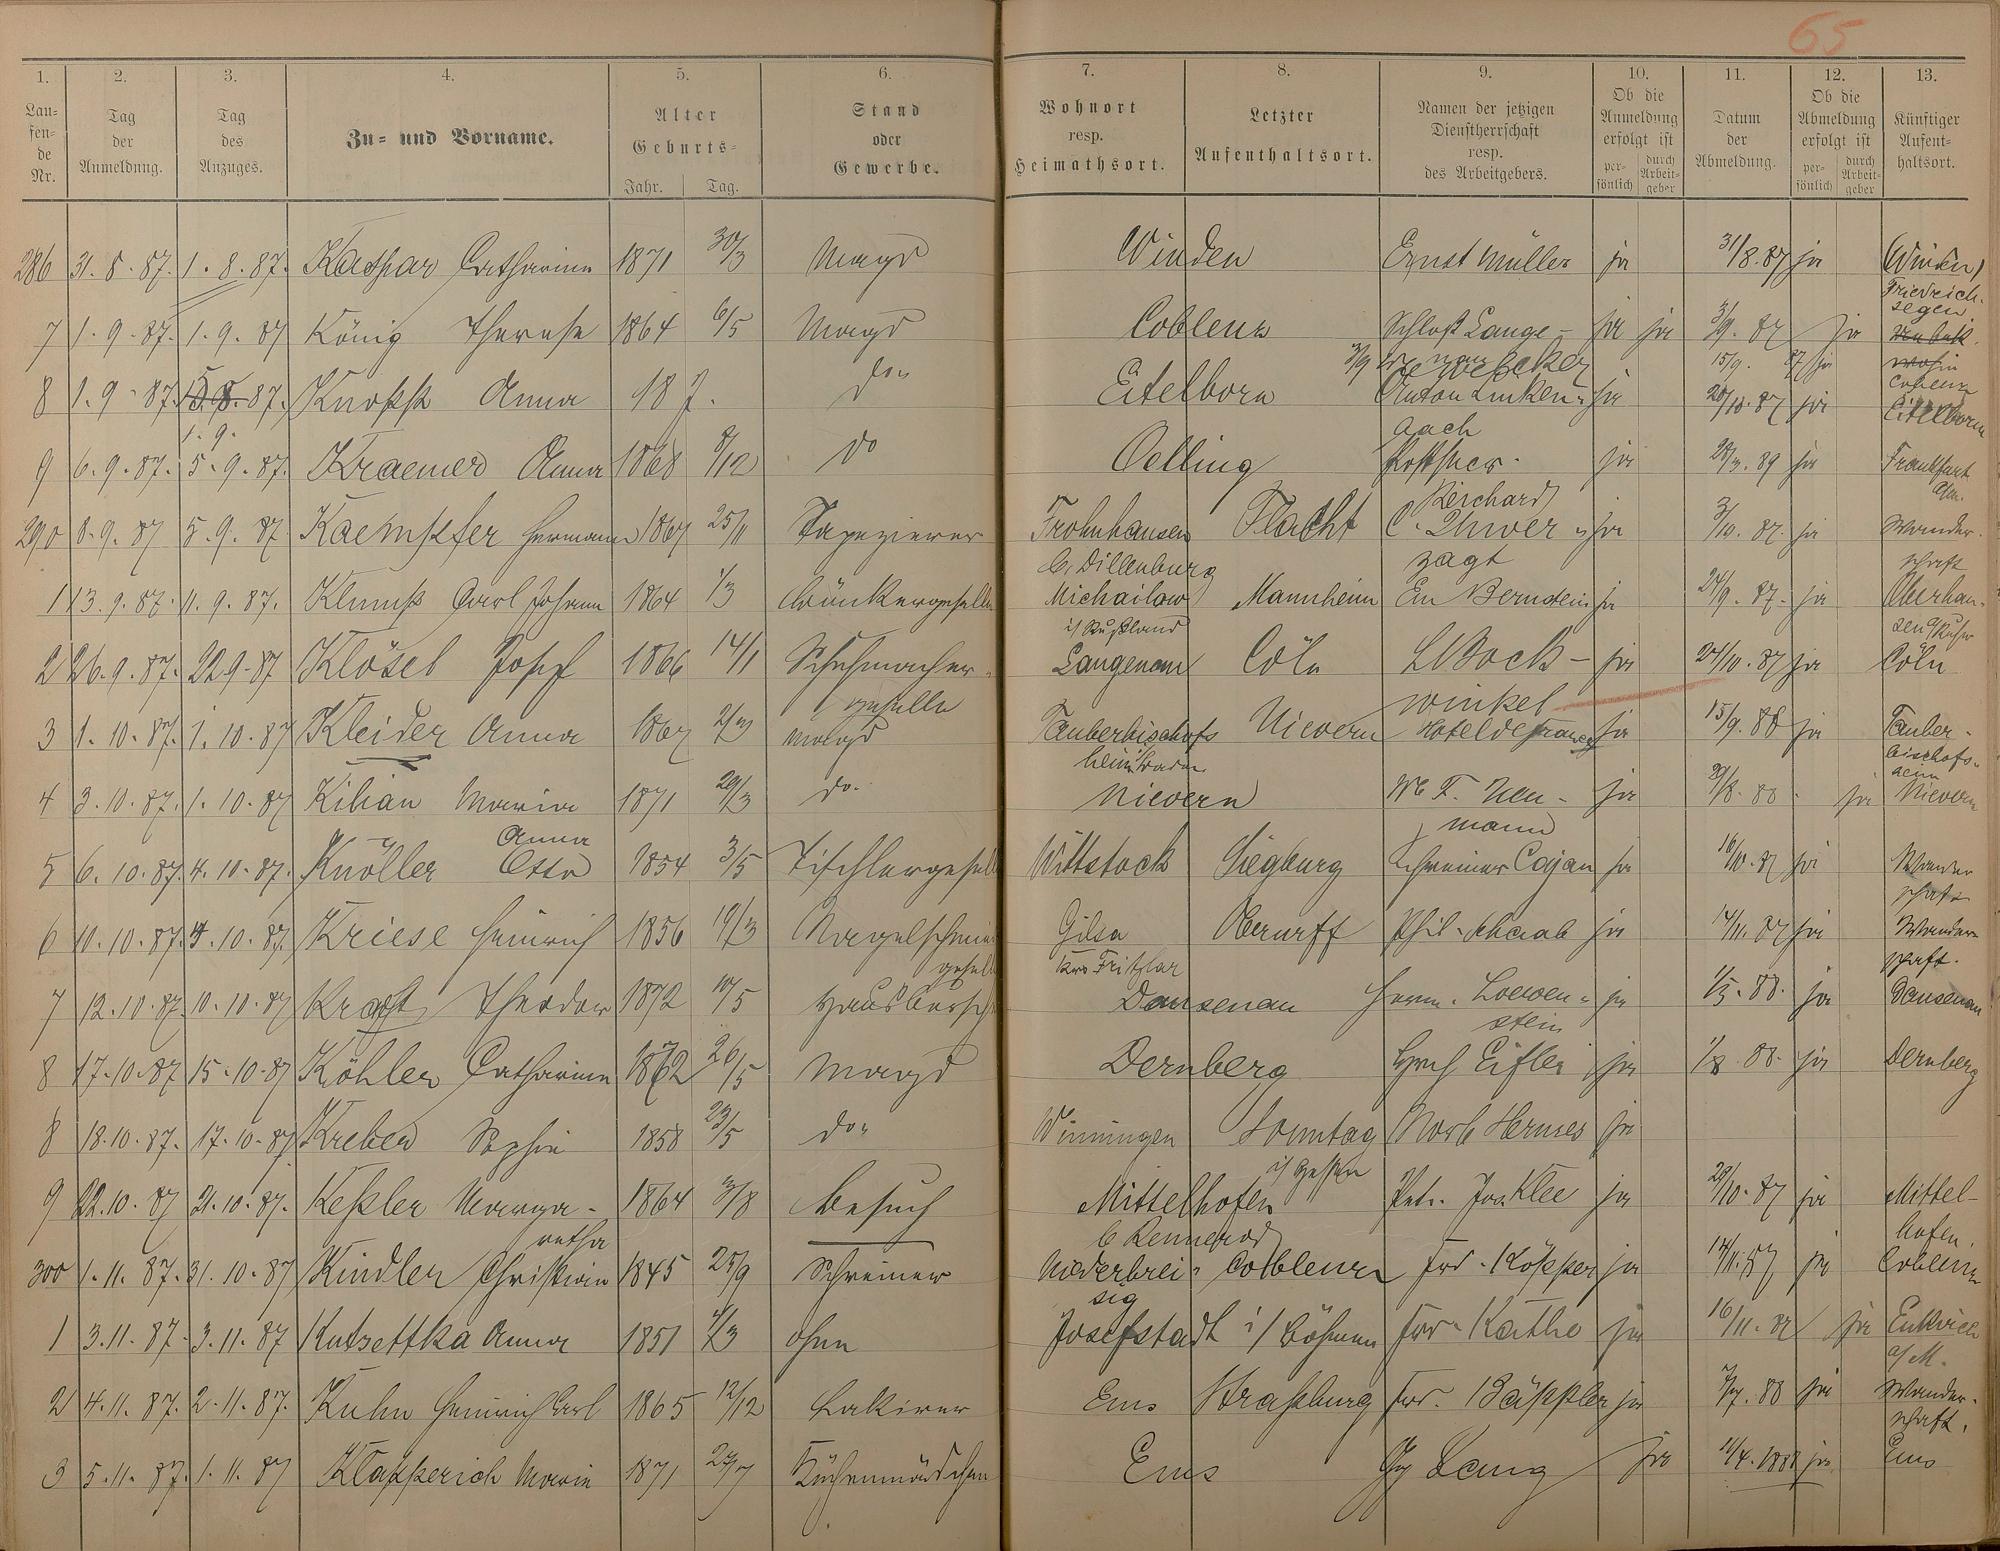 65
1. 2. 3. 4. 5. 6. 7. 8. 9. 10. 11. 12. 13.
Lau-
fen-
de
Nr.
Tag
der
Anmeldung.
Tag
des
Anzuges.
Zu- und Vorname.
Alter
Geburts-
Jahr. Tag.
Stand
oder
Gewerbe.
Wohnort
resp.
Heimathsort.
Letzter
Aufenthaltsort.
Namen der jetzigen
Dienstherrschaft
resp.
des Arbeitgebers.
Ob die
Anmeldung
erfolgt ist
per-
sönlich
durch
Arbeit-
geber
Datum
der
Abmeldung.
Ob die
Abmeldung
erfolgt ist
per-
sönlich
durch
Arbeit-
geber
Künftiger
Aufent-
haltsort.
286 31. 8. 87. 1. 8. 87. Kaspar Catharina 1871 30/3 Magd Winden Ernst Müller ja 31/8. 87 ja (Winden)
Friedrich-
segen
7 1. 9. 87. 1. 9. 87 König Therese 1864 6/5 Magd Coblenz Schloß Lange- ja ja 3/9. 87 ja
15/9. 87 ja wohin
Coblenz
8 1. 9. 87. 87. Knopp Anna 18 do Eitelborn Anton Linken- ja 20/10. 87 ja Eitelborn
1. 9. bach
9 6. 9. 87. 5. 9. 87. Kraemer Anna 1868 8/12 do Oelling ja 89 ja Frankfurt
a/M.
Kirchard
290 8. 9. 87 5. 9. 87 Kaempfer Hermann 1867 25/11 Tapezierer Frohnhausen Flacht C. ja 3/10. 87. ja Wander-
b. Dillenburg zagt schaft
1 13. 9. 87. 11. 9. 87. Carl Johann 1864 1/3 Michailow Mannheim Em Bernstein ja 24/9. 87. ja Oberhau-
i/ Rußland sen a/ Ruhr
2 26. 9. 87. 22 9 87 Klösel Josef 1866 14/1 Schuhmacher- Langenau Cöln L Bock- ja 24/10. 87 ja Cöln
geselle winkel
3 1. 10. 87. 1. 10. 87 Kleider Anna 1867 Magd Tauberbischofs Nievern Hotel de France ja 15/9. 88 ja Tauber-
heim Baden bischofs-
heim
4 3. 10. 87. 1. 10. 87 Kilian Maria 1871 29/3 do. Nievern We F. Neu- ja 29/8. 88. ja Nievern
Anna mann
5 6. 10. 87. 4. 10. 87. Knöller Otto 1854 3/5 Tischlergesell Wittstock Siegburg Schreiner Cajan ja 16/10. 87 ja Wander
schaft
6 11. 10. 87. 10. 87. Kriese Heinrich 1856 19/3 Nagelschmied Gilsa Oberurff Phil. Schaab ja 14/11. 87 ja Wander-
gesell Krs Fritzlar schaft.
7 12. 10. 87. 10. 10. 87 Kraft Theodor 1872 10/5 Hausbursch Dausenau Herm. Loewen- ja 88. ja Dausenau
stein
8 17. 10. 87 15. 10. 87 Köhler Catharina 1872 26/5 Magd Dernberg Eifler ja 88. ja Dernberg
8 18. 10. 87. 17. 10. 87 Kreber Sophie 1858 23/5 do Winningen Sonntag Norb Hermes ja
i/ Hessen
9 22. 10. 87 21. 10. 87. Keßler Marga- 1864 3/8 Besuch Mittelhofen Petr. Jos. Klee ja 28/10. 87 ja Mittel-
retha b Rennerod hofen.
300 1. 11. 87. 31. 10. 87 Kindler Christian 1845 25/9 Schreiner Niederbrei- Coblenz Frd. Köpper ja 14/11. 87 ja Coblenz
sig
1 3. 11. 87. 3. 11. 87 Kutzettka Anna 1851 4/3 ohne Josefstadt i/ Böhmen Frd. Käthe ja 16/11. 87 ja Enkirch
a/ M.
2 4. 11. 87. 2. 11. 87. Kuhn Heinrich Carl 1865 12/12 Lakirer Ems Straßburg Frd. Bäppler ja 7/7. 88 ja Wander-
schaft.
3 5. 11. 87. 1. 11. 87 Klapperich Maria 1871 24/7 Küchenmädchen Ems Gg Lang ja 11/4. 1888 ja Ems